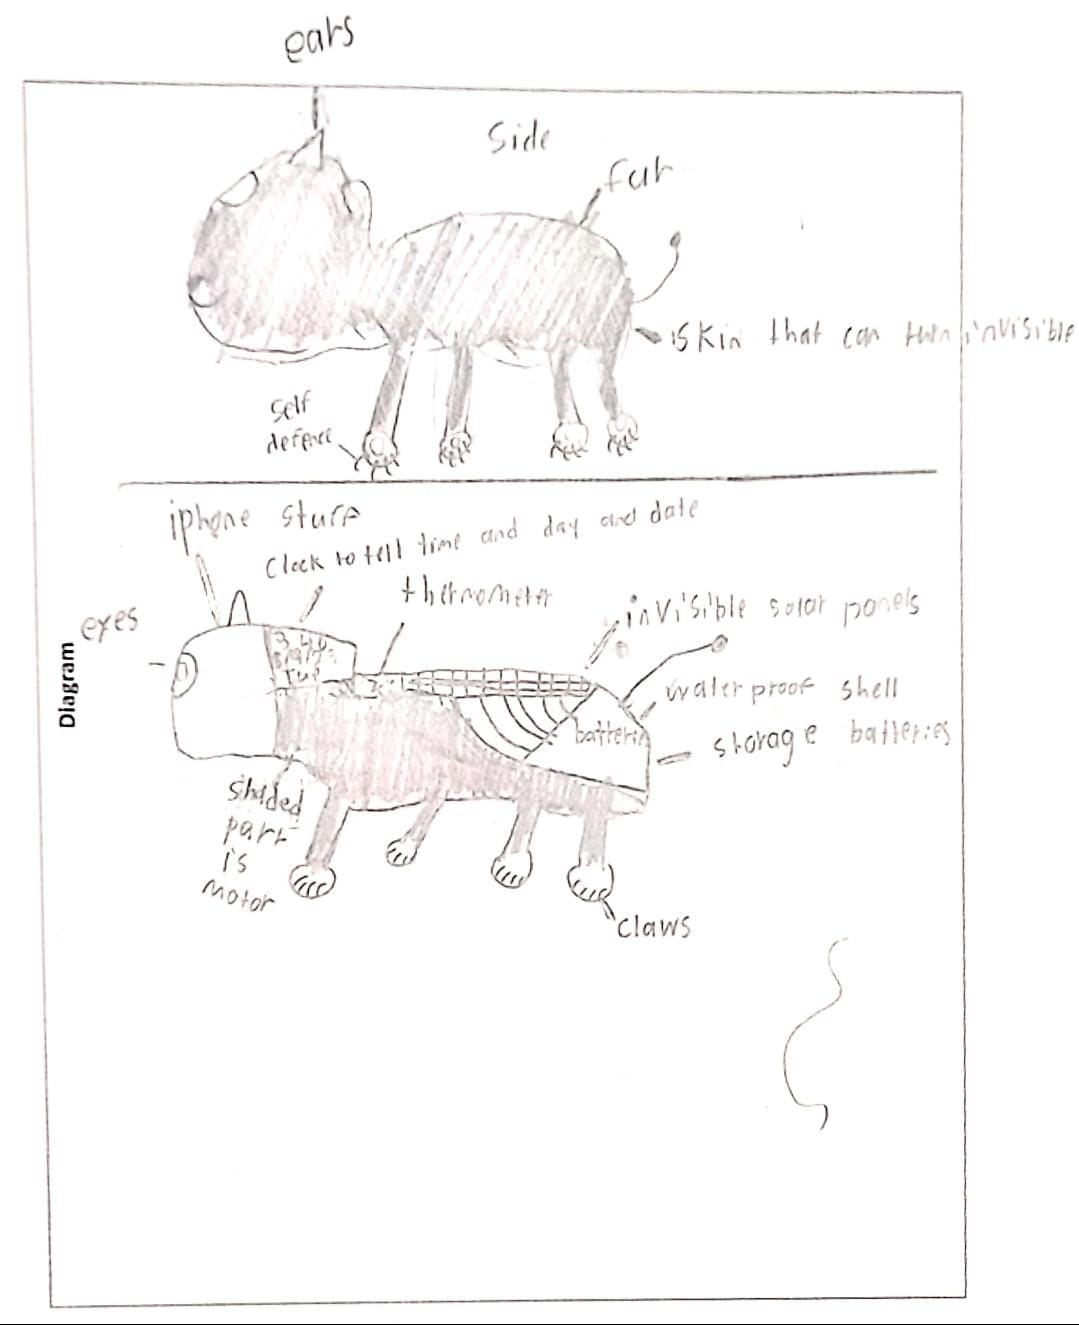 ears
Side
fur
Skin that can turn invisible
Self
defence
iphone stuff
Clock to tell time and day and date
thermometer
invisible solar panels
eyes
Diagram
waterproof shell
batteries
storage batteries
shaded
part
is
motor
claws